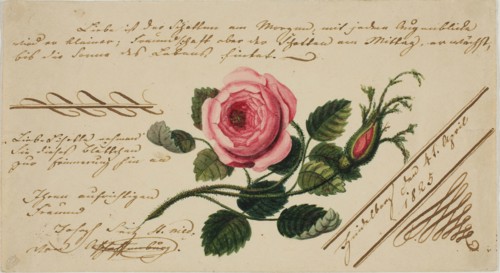 Liebe ist der Schatten am Morgen, mit jedem Augenblicke
wird er kleiner; Freundschaft aber der Schatten am Mittag, er wächst,
bis die Sonne des Lebens sinket.
Sie dieses Blättchen
zur Erinnerung hin an
Ihren aufrichtigen
Freund
Joseph
Heidelberg den 41. April
1825